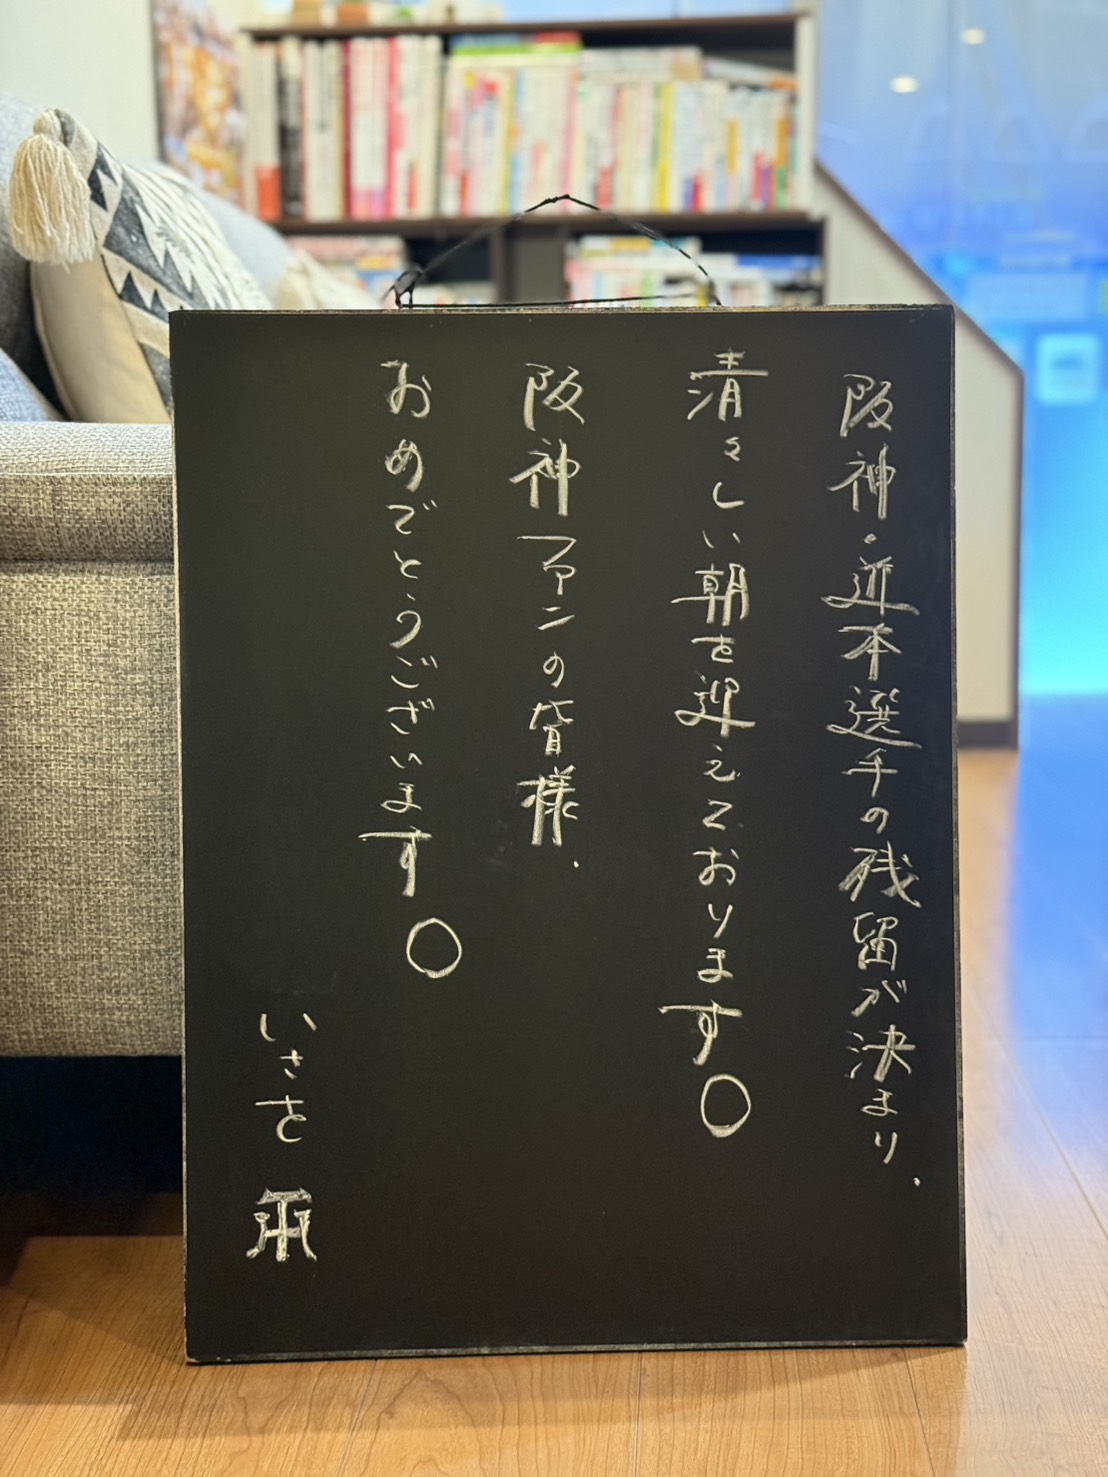 阪神・近本選手の残留が決まり、
清々しい朝を迎えております。
阪神ファンの皆様、
おめでとうございます。
いさを